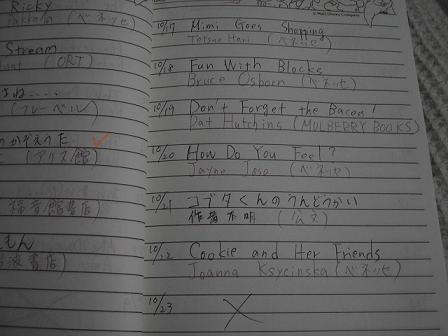 Ricky
(ベネッセ)
Stream
(ORT)
(フレーベル)
かぞえうた
(アリス館)
福音館書店)
もん
書店)
10/17 Mimi Goes Shopping
(ベネッセ)
10/18 Fun With Blocks
Bruce Osborn (ベネッセ)
10/19 Don't Forget the Bacon!
Pat Hutchins (MULBERRY BOOKS)
10/20 How Do You Feel?
Jayne Joso (ベネッセ)
10/21 コブタくんのうんどうかい
作者不明 (公文)
10/22 Cookie and Her Friends
Joanna Ksycinska (ベネッセ)
10/23 ×